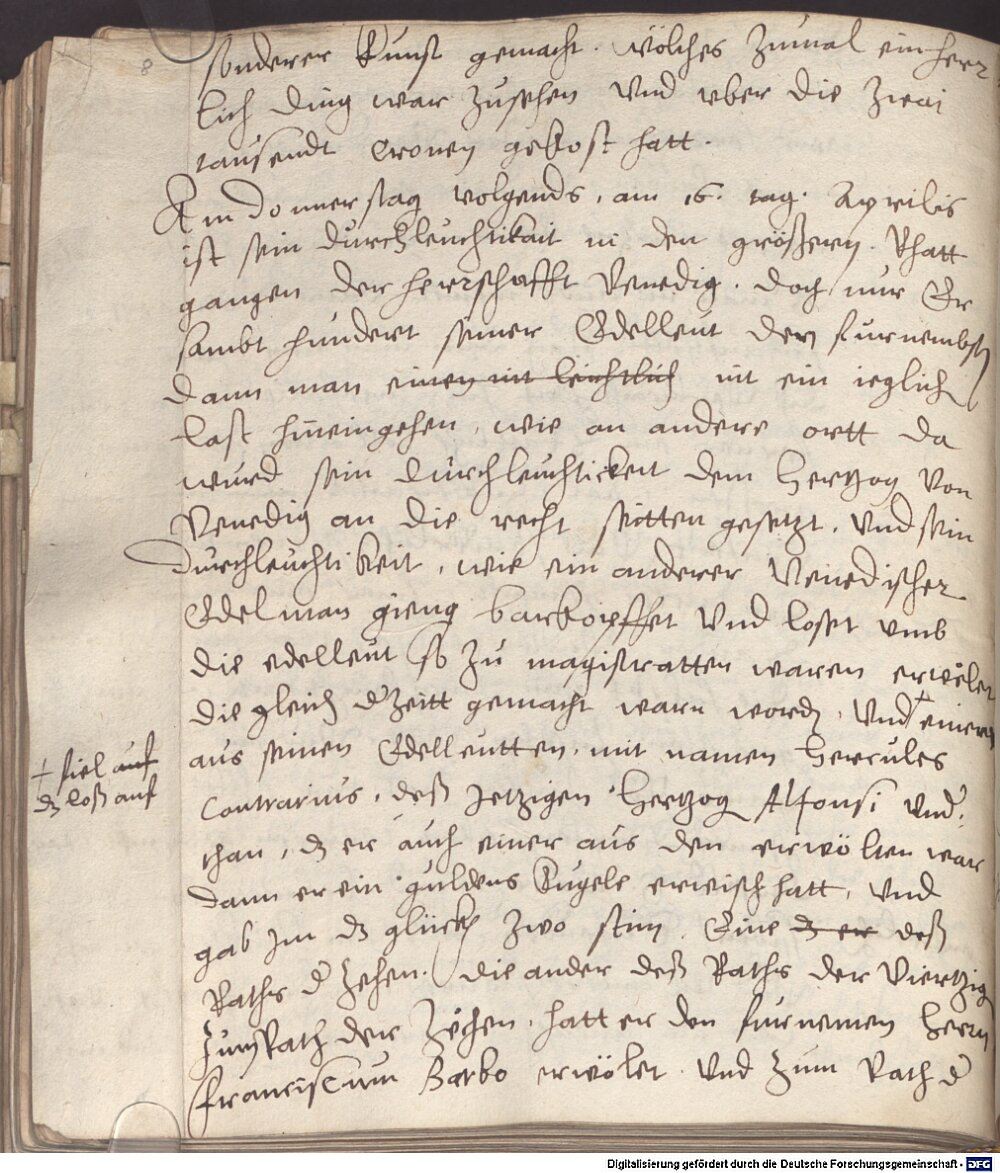 8
sonderer Kunst gemacht. wölches zumal ein herr
lich ding war zusehen vnd vber die zwai
tausendt Cronen gekost hatt.
Am donnerstag volgends, am 16. tag. Aprilis
ist sein durchleuchtikait in den größern. Rhatt
gangen der herrschafft Venedig. doch nur Er
sambt hundert seiner Edelleut den furnembsten
dann man einen nit leichtlich nit ein ieglich
last hineingehen, wie an andere ortt da
wurd sein durchleuchtickeit dem hertzog von
Venedig an die recht seitten gesetzt. Vnd sein
durchleuchtikeit, wie ein anderer Venedischer
Edelman gieng barkopffet vnd loset vmb
die edelleut so zu magistratten waren erwölet
die gleich d' zeitt gemacht warn word, Vnd + einem
aus seinen Edelleutten. mit namen Hercules
+ fiel auf
dz loß auf
Contrarius, deß Jetzigen Hertzog Alfonsi Vnd'
than, dz er auch einer aus den erwölten war
dann er ein guldens Kugele erwischt hatt, vnd
gab Im dz glück zwo stim. Eine dz er deß
Raths d' Zehen. die ander deß Raths der Viertzig
Zum Rath der Zehen. hatt er den furnemen Herrn
Franciscum Barbo erwölet. Vnd zum Rath d'
Digitalisierung gefördert durch die Deutsche Forschungsgemeinschaft - DFG